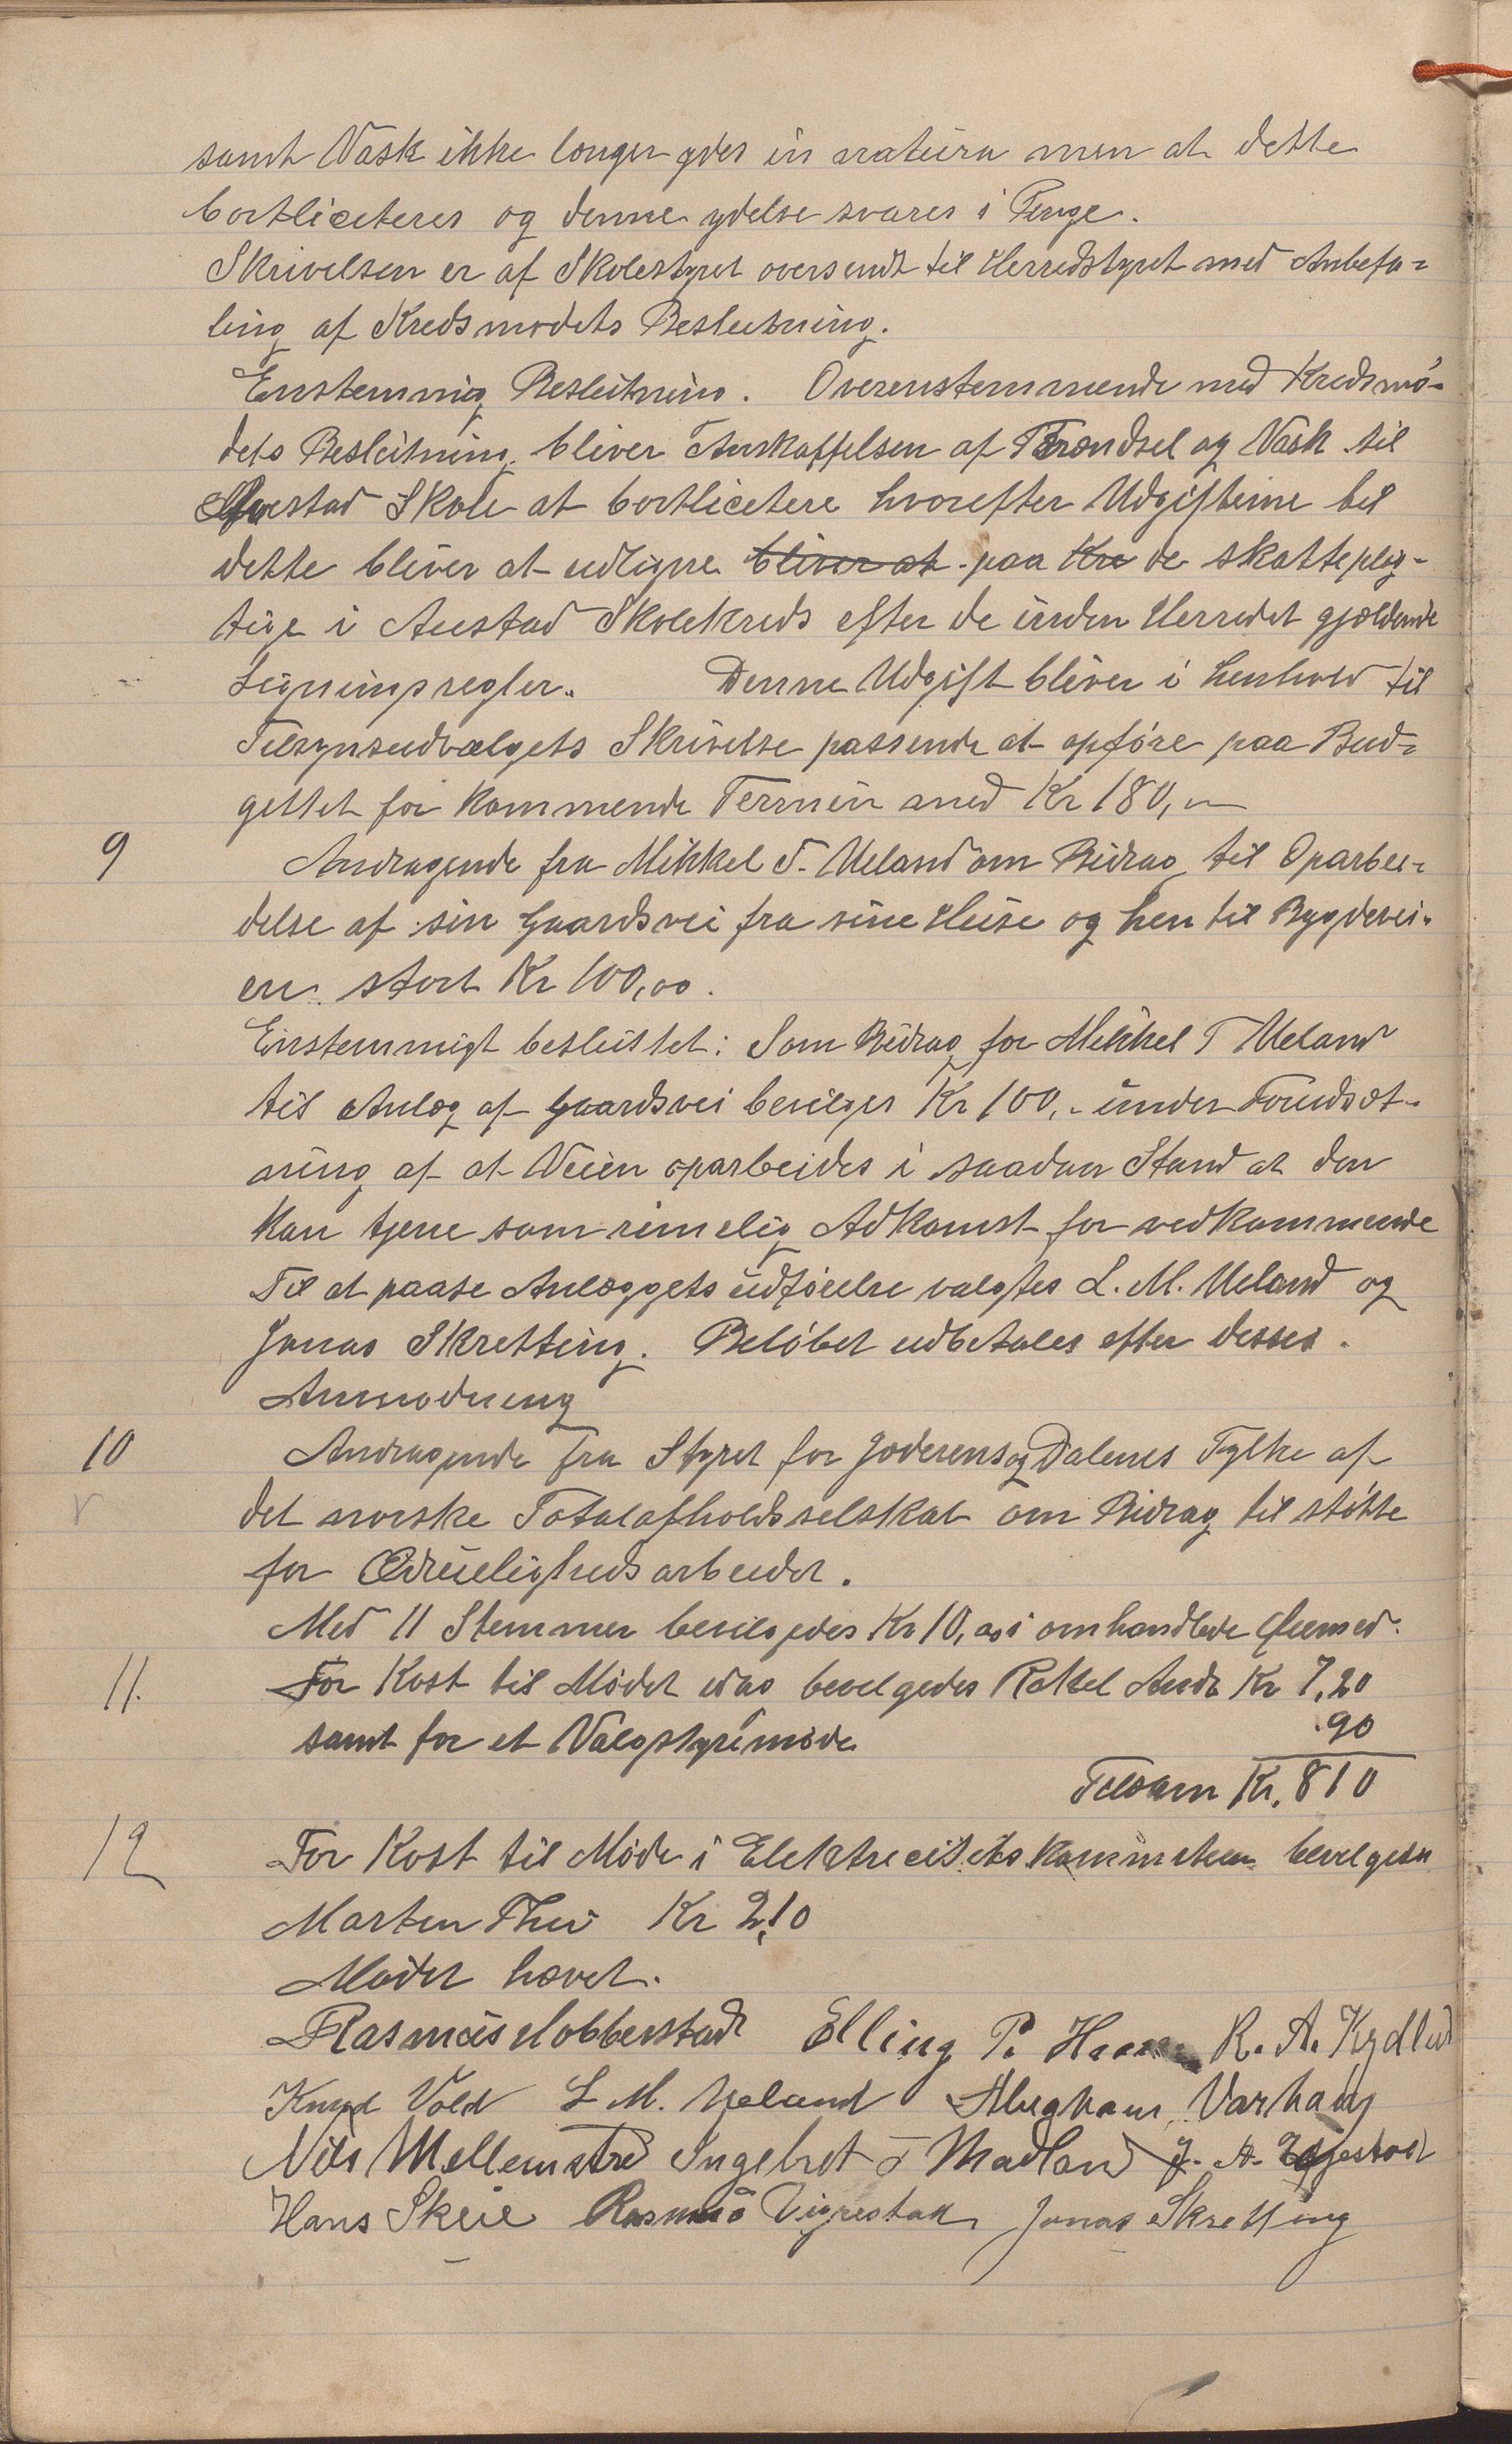 samt Vask ikke længer ydes in natura men at dette
bortliciteres og denne ydelse svares i Penge.
Skrivelsen er af Skolestyret oversendt til Herredstyret med Anbefa=
ling af Kredsmødets Beslutning.
Enstemmig Beslutning. Overensstemmende med Kredsmø-
dets Beslutning bliver Anskaffelsen af Brændsel og Vask til
Austad Skole at bortlicitere hvorefter Udgifterne til
dette bliver at udligne bliver at paa Kre de skatteplig-
tige i Austad Skolekreds efter de inden Herredet gjældende
Ligningsregler. Denne Udgift bliver i Henhold til
Tilsynsudvalgets Skrivelse passende at opføre paa Bud=
gettet for kommende Termin med Kr 180,-
9 Andragende fra Mikkel T. Ueland om Bidrag til Oparbei=
delse af sin Gaardsvei fra sine Huse og hen til Bygdevei-
en stort Kr 100,00.
Enstemmigt besluttet: Som Bidrag for Mikkel T Ueland
til Anlæg af Gaardsvei bevilges Kr 100,- under Forudsæt-
ning af at Veien oparbeides i saadan Stand at den
kan tjene som rimelig Adkomst for vedkommende
Til at paase Anlæggets udførelse valgtes L. M. Ueland og
Jonas Skretting. Beløbet udbetales efter disses
Anmodning
10 Andragende fra Styret for Jæderens og Dalenes Fylke af
det norske Totalafholdsselskab om Bidrag til støtte
for Ædruelighedsarbeidet.
Med 11 Stemmer bevilgedes Kr 10,00 i omhandlede Øiemed.
11. For Kost til Mødet idag bevilgedes Rakel Auda Kr 7,20
samt for et Valgstyremøde .90
Tilsam Kr. 810
12 For Kost til Møde i Elektricitetskommiteen bevilgedes
Marten Thu Kr 2,10
Mødet hævet.
Rasmus Hobberstad Elling P. R. A. Kydland
Knud Vold L M. Ueland Abraham Varhaug
Nils Mellemstrø Ingebret T Madland J. A.
Hans Skeie Rasmus Vigrestad Jonas Skretting